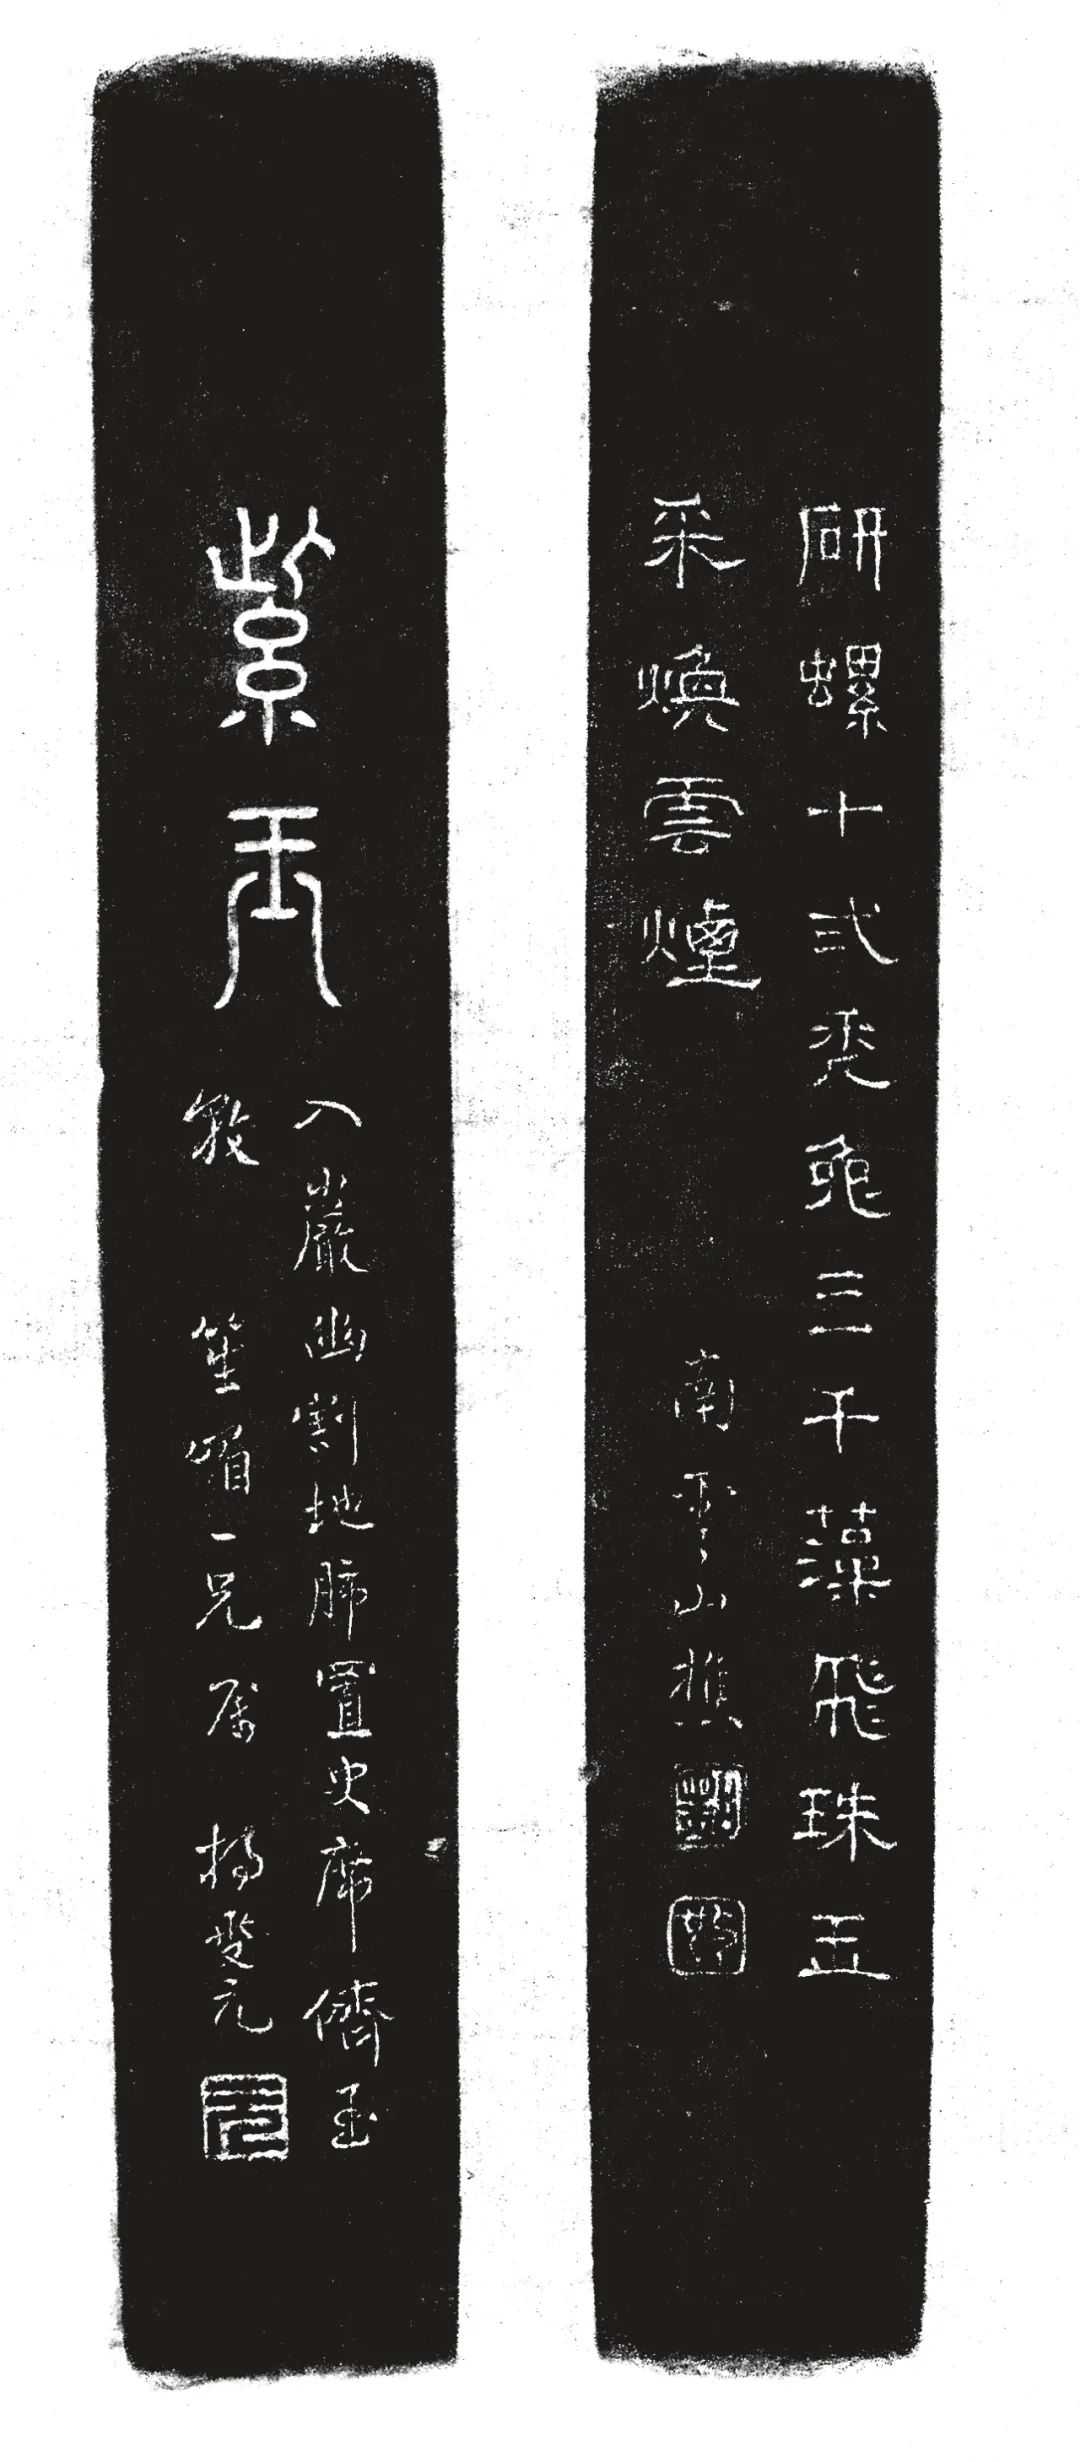 研螺十弍禿兔三千藻飛珠玉
采煥雲煙
南雲山樵
紫
入巖幽割地肺置史席儕玉
笙 一兄屬 楊燮元